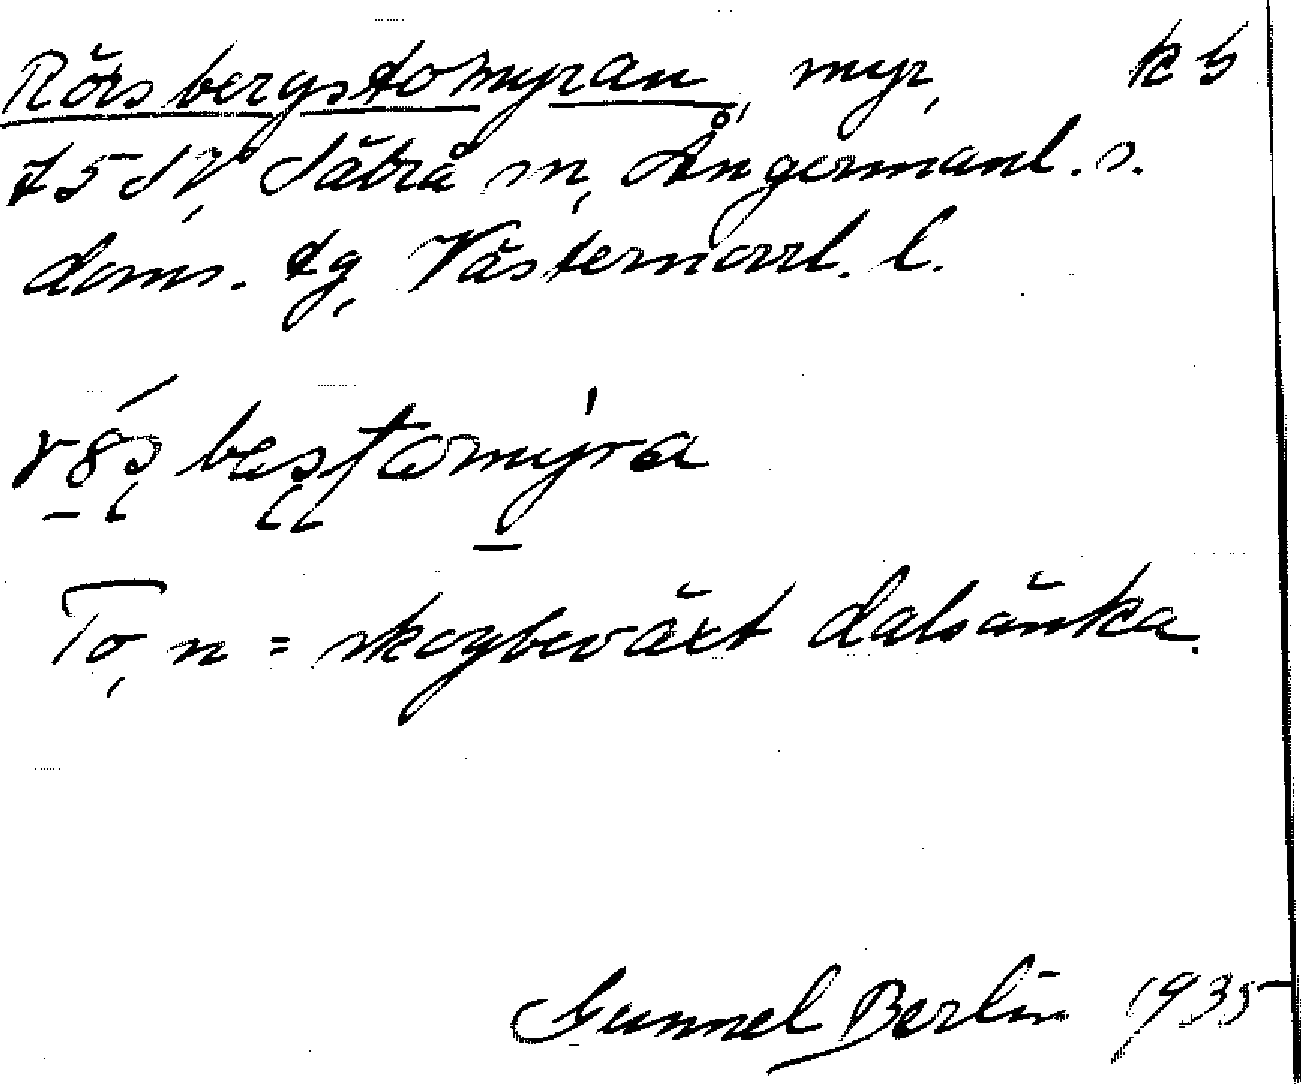 Rörsbergstomyran, myr, k 5
75 SV, Sätrå sn, Ångermanl. s.
doms. tg, Västernorrl. l.
To, n = skogbeväxt dalsänka.
Gunnel Berlin 1935